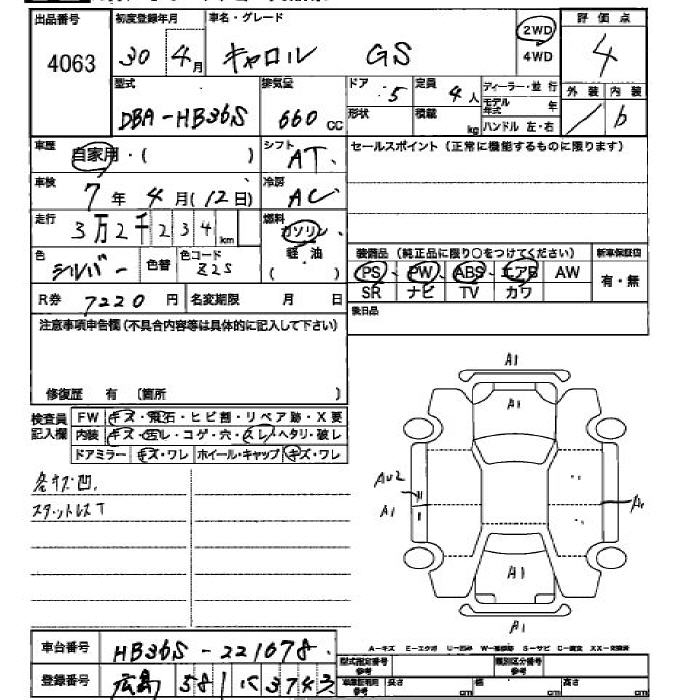 出品番号 初度登録年月 車名・グレード 2WD 評価点
4063 30 4月 キャロル GS 4WD 4
型式 排気量 ドア 5 定員 4人 ディーラー・並行 外装 内装
DBA-HB36S 660cc 形状 積載 kg モデル年式 年 ハンドル 左・右 b
車歴 自家用・( ) シフト AT セールスポイント(正常に機能するものに限ります)
車検 7年4月(12日) 冷房 AC
走行 3万2千234km 燃料 ガソリン
色 シルバー 色替 色コード Z2S 軽油 ( ) 装備品 (純正品に限り○をつけてください) 新車保証書
PS PW ABS エアB AW 有・無
R券 7220円 名変期限 月 日 SR ナビ TV カワ
注意事項申告欄(不具合内容等は具体的に記入して下さい) 後日品
修復歴 有 〔箇所 〕
検査員記入欄 FW キズ・飛石・ヒビ割・リペア跡・X要
内装 キズ・汚レ・コゲ・穴・スレ・ヘタリ・破レ
ドアミラー キズ・ワレ ホイール・キャップ キズ・ワレ
各キズ凹.
スタットレスT
A1
A1
AU2
A1
A1
A1
A1
車台番号 HB36S-221078
A-キズ E-エクボ U-凹み W-補修跡 S-サビ C-腐食 XX-交換済
登録番号 広島 581 3743
型式指定番号 類別区分番号
車庫証明用参考 長さ cm 幅 cm 高さ cm